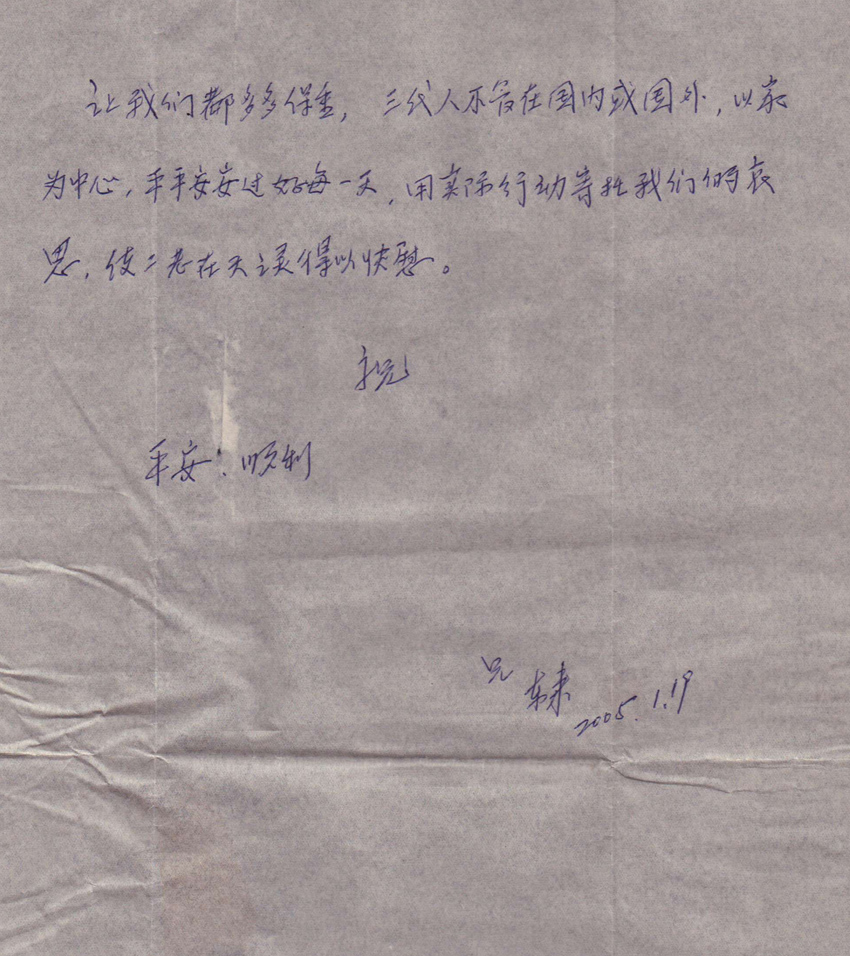 让我们都多多保重，三代人不管在国内或国外，以家
为中心，平平安安过好每一天，用实际行动寄托我们的哀
思，使二老在天之灵得以快慰。
祝
平安！顺利
兄
2005.1.19